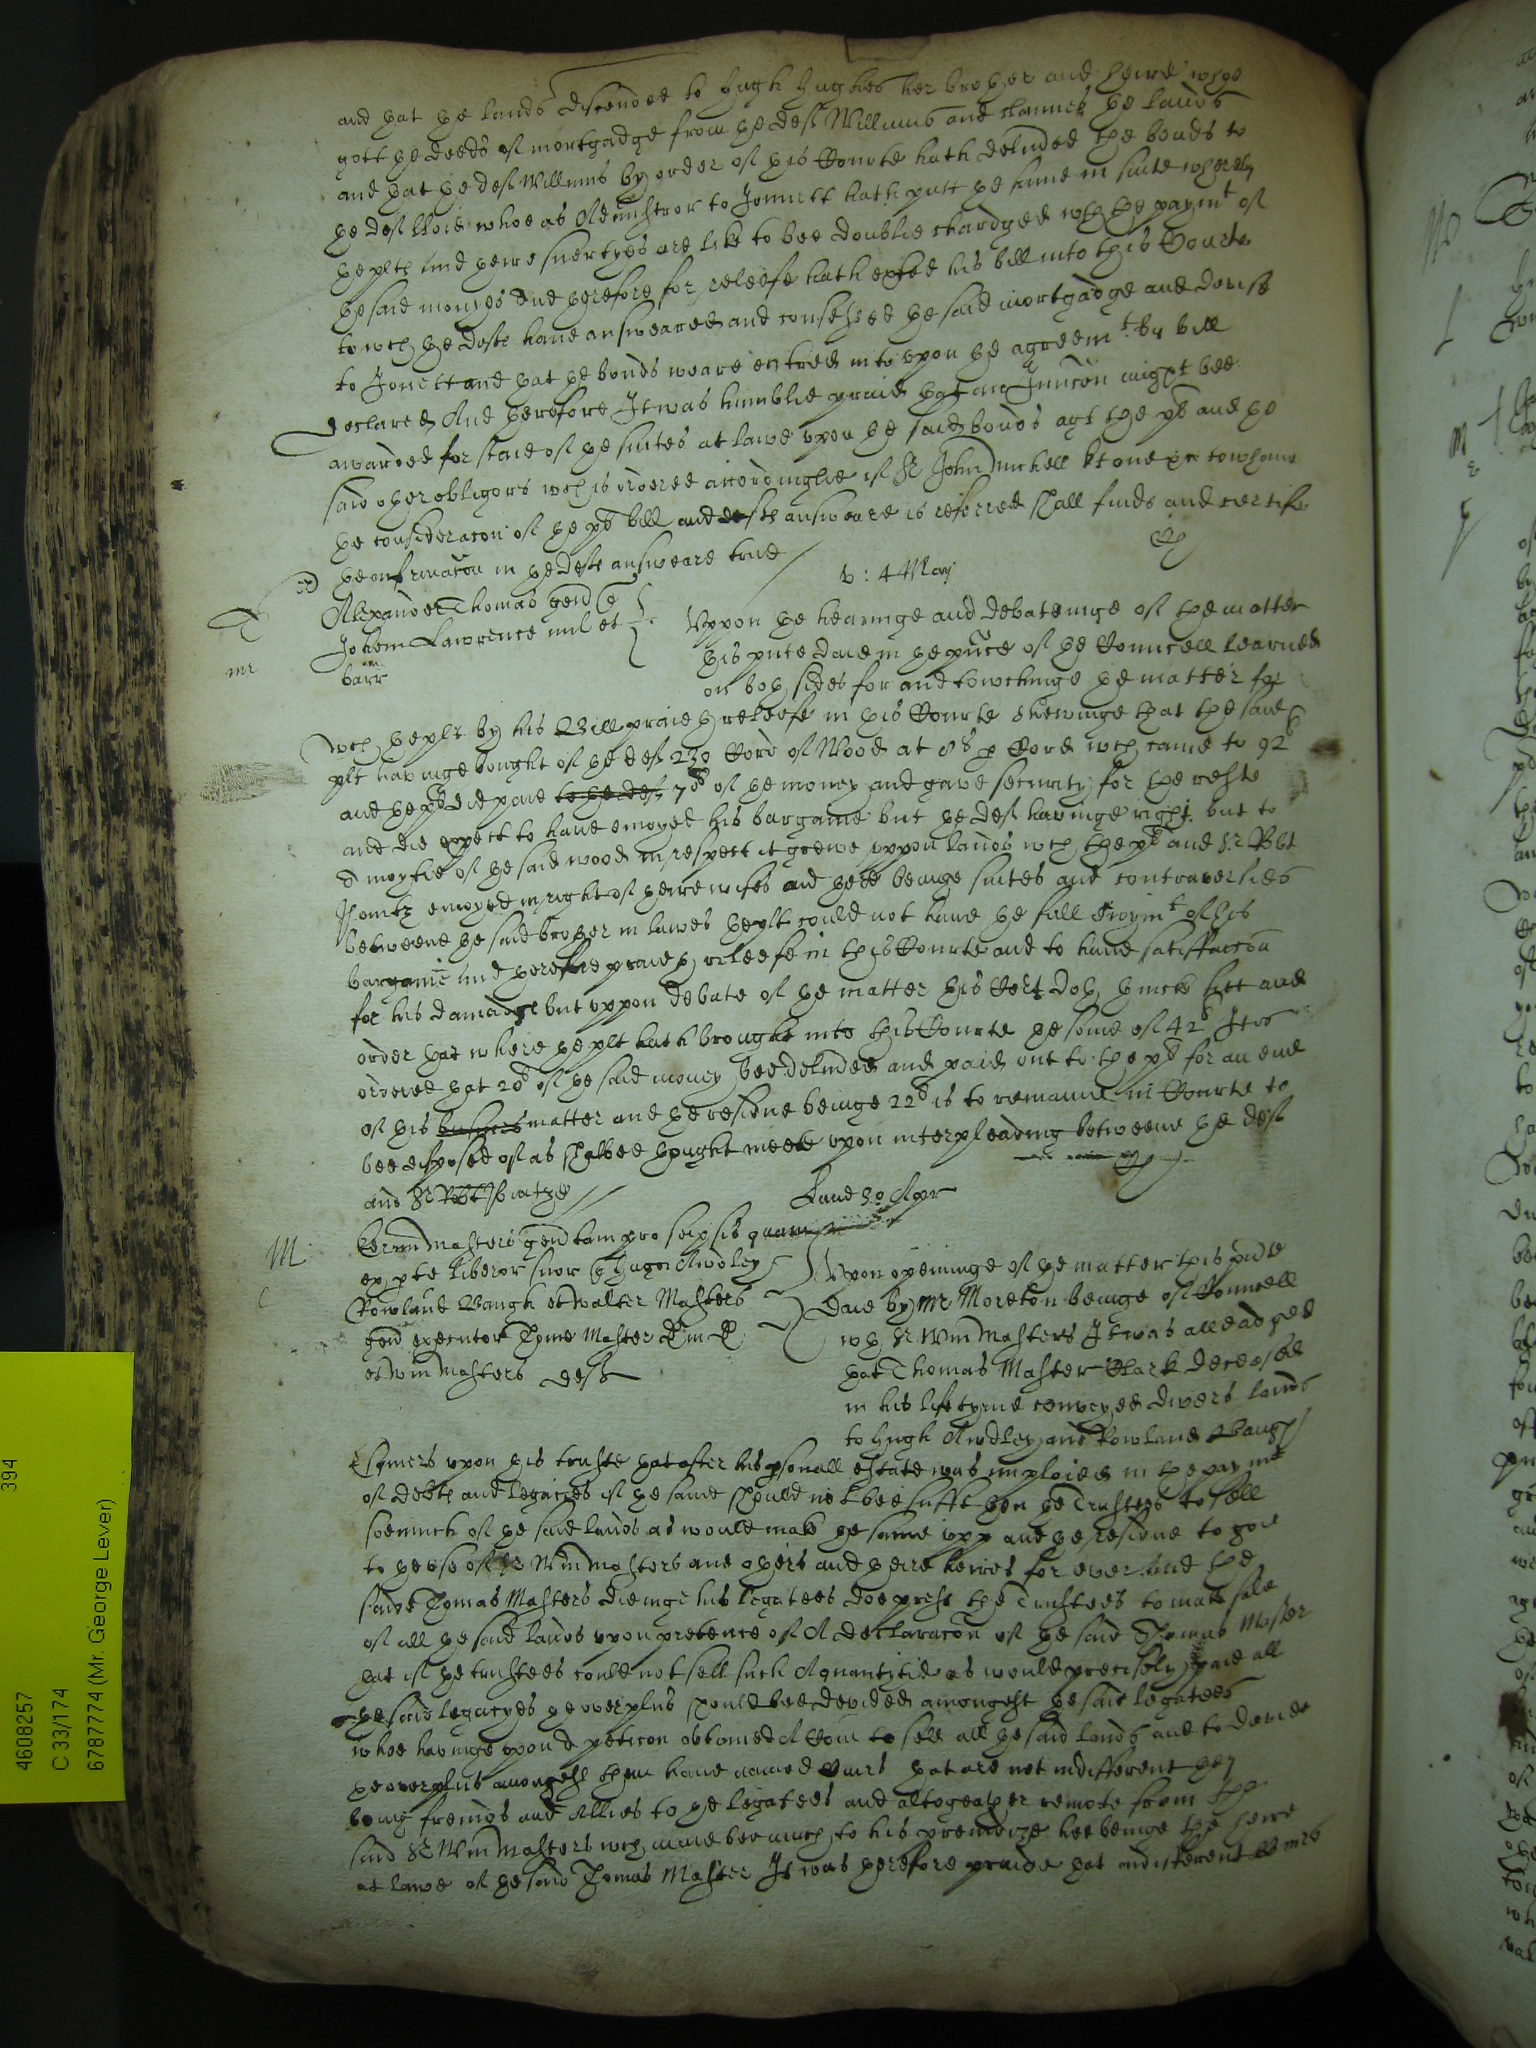 and that the lands discended to Hugh Hughes her brother and heire whoe
gott the deeds of mortgadge from the deft Williams and claimeth the lands
and that the deft Williams by order of this Courte hath deliuered the bonds to
the deft whoe as Administror to Jonnett hath putt the same in suite whereby
the plts and theire suertyes are like to bee double chardged wth the paymt of
the said moneyes And therefore for releefe hath exhibited his bill into this Courte
to wch the defts haue answeared and confessed the said mortgadge and devise
to Jonett and that the bonds weare entred into vpon the agreemt by bill
declared And therefore It was humblie praid that an Iniuncon might bee
awarded for staie of the suites at lawe vpon the said bonds agt the plt and the
said other obligors wch is ordered accordinglie if Sr John Michell kt one &c to whome
the consideracon of the plts bill and defts answeare is referred shall finde and certifie
the confirmacon in the defts answeare true
v : 4 Maij
Alexander Thomas gen Q
Johem Lawrence mil et
barr
Vppon the hearinge and debateinge of the matter
this pnte daie in the pnce of the Councell learned
on both sides for and towchinge the matter for
wch the plt by his Bill praieth releefe in this Courte shewinge that the said
plt havinge bought of the deft 230 Cord of Wood at 8s p Cord wch came to 92l
and the plt did paie to the deft 70l of the money and gave security for the reste
and did expect to haue enioyed his bargaine but the deft havinge right but to
A moytie of the said wood in respect it grewe vppon lands wch the plt and Sr Robt
enioyed in right of theire wifes and there beinge suites and controversies
betweene the said brother in lawes the plt could not haue the full enioymt of his
bargaine And therefore praieth releefe in this Courte and to haue satisfaccon
for his damadge but vppon debate of the matter this Cort doth thincke fitt and
order that where the plt hath brought into this Courte the some of 42l It is
ordered that 20l of the said money bee deliuered and paid out to the plt for an end
of this busines matter and the residue beinge 22l is to remaine in Courte to
bee disposed of as shalbee thought meete vpon interpleading betweene the deft
and Sr Robt
Lune 30 Apr
M
Willm Masters gen tam pro seipso quam
ex pte liberor suor Q Hugon Awdley
Rowland Vaugh et Walter Masters
gen executor Thome Master
et Wm Masters defts
Vpon openinge of the matter this pnte
daie by Mr Moreton beinge of Councell
wth Sr Wm Masters It was alleadged
that Thomas Master Clark deceased
in his life tyme conveyed divers lands
to Hugh Awdley and Rowland Vaugh
Esquiers vpon this truste that after his psonall estate was imploied in the paymt
of debts and legacies if the same should not bee suffi then the Trustees to sell
soe much of the said lands as would make the same vpp and the residue to goe
to the vse of Sr Wm Masters and others and theire heires for ever And the
said Thomas Masters dieinge his legatees doe presse the Trustees to make sale
of all the said lands vpon pretence of A declaracon of the said Thomas Master
that if the trustees could not sell such A quantitie as would precisely paie all
the said legacyes the overplus should bee devided amongest the said legatees
whoe havinge vpon A peticon obtained A Com to sell all the said lands and to devide
the overplus amongest them haue named Comrs that are not indifferent they
being freinds and Allies to the legatees and altogeather remote from the
said Sr Wm Masters wch maie bee much to his preiudize hee beinge the heire
at lawe of the said Thomas Master It was therefore praide that indifferent Comrs
394
4608257
C 33/174
6787774 (Mr. George Lever)